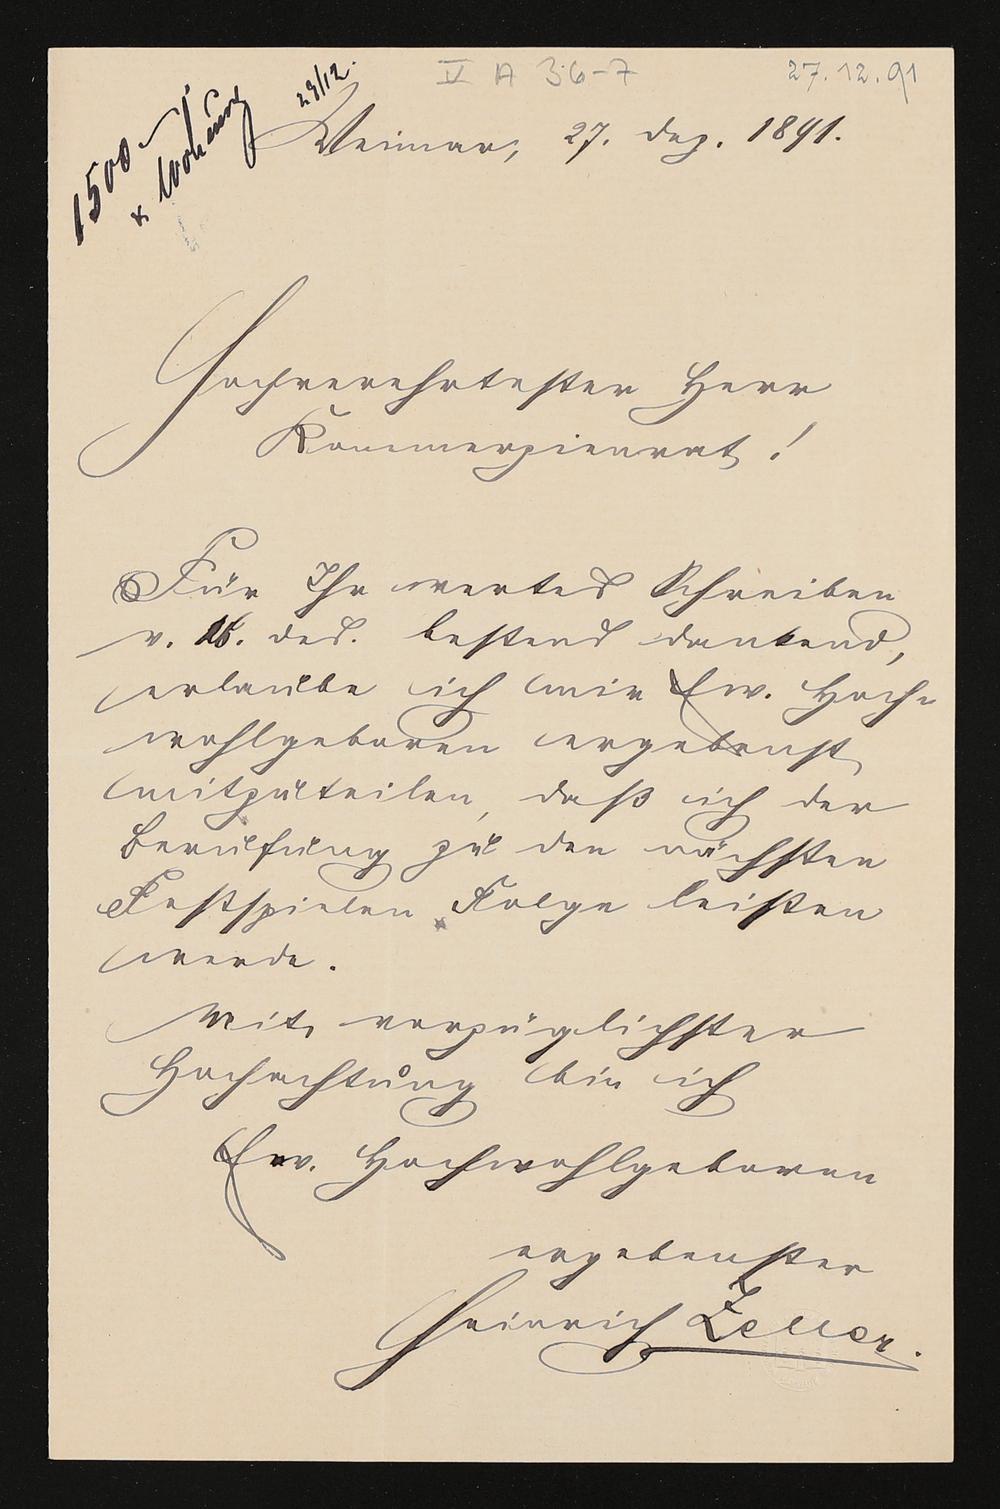 IV A 36-7
27.12.91
29/12.
1500 –
+ Wohnung
Weimar, 27. Dez. 1891.
Hochverehrtester Herr
Kommerzienrat!
Für Ihr wertes Schreiben
v. 16. des. bestens dankend,
erlaube ich mir Ew. Hoch-
wohlgeboren ergebenst
mitzuteilen, daß ich der
Berufung zu den nächsten
Festspielen Folge leisten
werde.
Mit vorzüglichster
Hochachtung bin ich
Ew. Hochwohlgeboren
ergebenster
Heinrich Zeller.